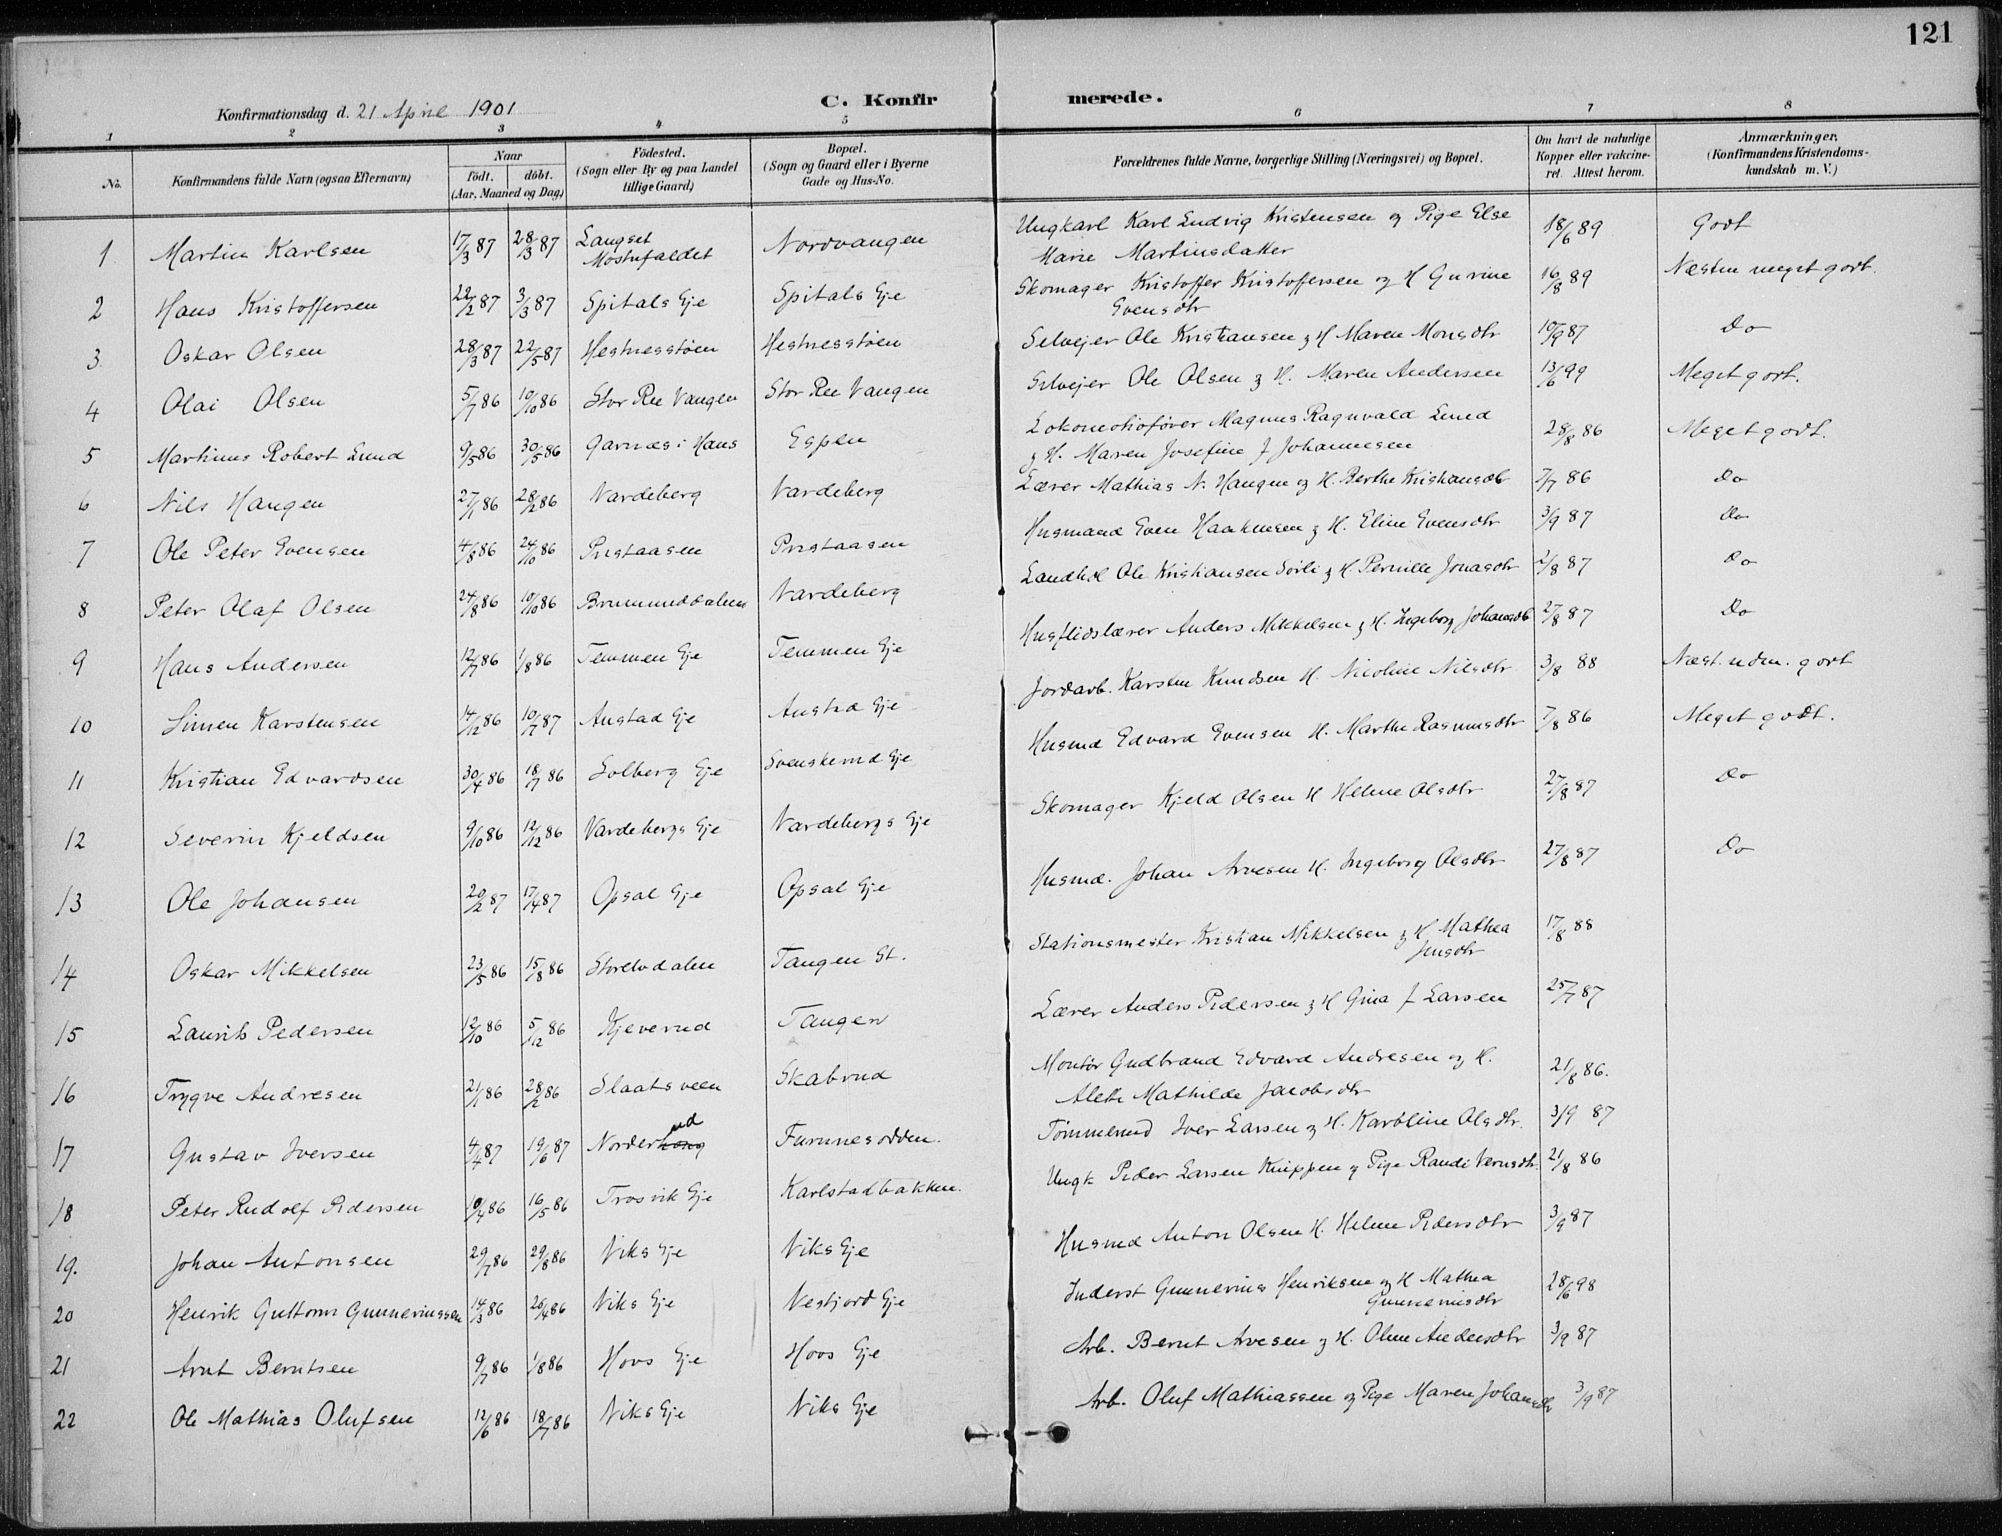 121
Konfirmationsdag d. 21 April 1901
C. Konfirmerede.
1 2 3 4 5 6 7 8
No. Konfirmandens fulde Navn (ogsaa Efternavn) Naar født. døbt. (Aar, Maaned og Dag) Fødested. (Sogn eller By og paa Landet tillige Gaard) Bopæl. (Sogn og Gaard eller i Byerne Gade og Hus-No. Forældrenes fulde Navne, borgerlige Stilling (Næringsvei) og Bopæl. Om havt de naturlige Kopper eller vakcineret. Attest herom. Anmærkninger. (Konfirmandens Kristendomskundskab m. V.)
1 Martin Karlsen 17/3 87 28/3 87 Langset Mostufaldet Nordvangen Ungkarl Karl Ludvig Kristensen og Pige Else Marie Martinsdatter 18/6 89 Godt
2 Hans Kristoffersen 22/2 87 3/3 87 Spitals Eje Spitals Eje Skomager Kristoffer Kristoffersen og H Gurine Evensdtr 16/8 89 Næsten meget godt.
3 Oskar Olsen 28/3 87 22/5 87 Hestnesstøen Hestnesstøen Selvejer Ole Kristiansen & H Maren Monsdtr 10/9 87 Do
4 Olai Olsen 5/7 86 10/10 86 Stor Ree Vangen Stor Ree Vangen Selvejer Ole Olsen & H. Maren Andersen 13/6 99 Meget godt.
5 Martinus Robert Lund 9/5 86 30/5 86 Garnæs i Hans Espen Lokomotivfører Magnus Ragnvald Lund & H. Maren Josefine f Johannesen 28/8 86 Meget godt.
6 Nils Haugen 27/1 86 28/2 86 Vardeberg Vardeberg Lærer Mathias N. Haugen og H. Berthe Kristiansdtr 2/7 86 Do
7 Ole Peter Evensen 4/8 86 24/10 86 Pristaasen Pristaasen Husmand Even Haakensen & H. Eline Evensdtr 3/9 87 Do
8 Peter Olaf Olsen 24/8 86 10/10 86 Brummunddalen Vardeberg Landhdl Ole Kristiansen Sørli & H. Pernille Jonasdtr 2/8 87 Do
9 Hans Andersen 12/7 86 1/8 86 Temmen Eje Temmen Eje Husflidslærer Anders Mikkelsen & H. Ingeborg Johansdtr 27/8 87 Do
10 Simen Karstensen 14/12 86 10/7 87 Anstad Eje Anstad Eje Jordarb. Karsten Knudsen H. Nicoline Nilsdtr 3/8 88 Næst. uden. godt
11 Kristian Edvardsen 30/4 86 18/7 86 Solberg Eje Svenskerud Eje Husmd Edvard Evensen H. Marthe Rasmusdtr 7/8 86 Meget godt.
12 Severin Kjeldsen 9/10 86 12/12 86 Vardebergs Eje Vardebergs Eje Skomager Kjeld Olsen H Helene Olsdtr 27/8 87 Do
13 Ole Johansen 20/2 87 17/4 87 Opsal Eje Opsal Eje Husmd. Johan Arvesen H. Ingeborg Olsdtr 27/8 87 Do
14 Oskar Mikkelsen 23/5 86 15/8 86 Storelvdalen Tangen St. Stationsmester Kristian Mikkelsen & H. Mathea Jensdtr 17/8 88
15 Laurits Pedersen 12/10 86 5/12 86 Kjeverud Tangen Lærer Anders Pedersen & H Gina f Larsen 25/7 87
16 Trygve Andresen 21/1 86 28/2 86 Slaatsveen Skabrud Montør Gudbrand Edvard Andresen og H. Alette Mathilde Jacobsdtr 21/8 86.
17 Gustav Iversen 4/4 87 19/6 87 Norderhaug ud Furunesodden. Tømmermd Iver Larsen & H. Karoline Olsdtr. 3/9 87
18 Peter Rudolf Pedersen 10/4 86 16/5 86 Trosvik Eje Karlstadbakken. Ungk Peder Larsen Knippen & Pige Randi Vernsdtr 21/8 86
19. Johan Antonsen 29/7 86 29/8 86 Viks Eje Viks Eje Husmd Anton Olsen H. Helene Pedersdtr 3/9 87
20 Henrik Guttorm Gunneriussen 14/3 86 26/4 86 Viks Eje Vestjord Eje Inderst Gunnerius Henriksen og H Mathea Gunneriusdtr 28/6 98
21 Arnt Berntsen 9/7 86 1/8 86 Hovs Eje Hovs Eje Arb. Bernt Arvesen & H. Oline Andersdtr 3/9 87
22 Ole Mathias Olufsen 12/6 86 18/7 86 Viks Eje Viks Eje Arb. Oluf Mathiassen og Pige Maren Johansdtr 3/9 87